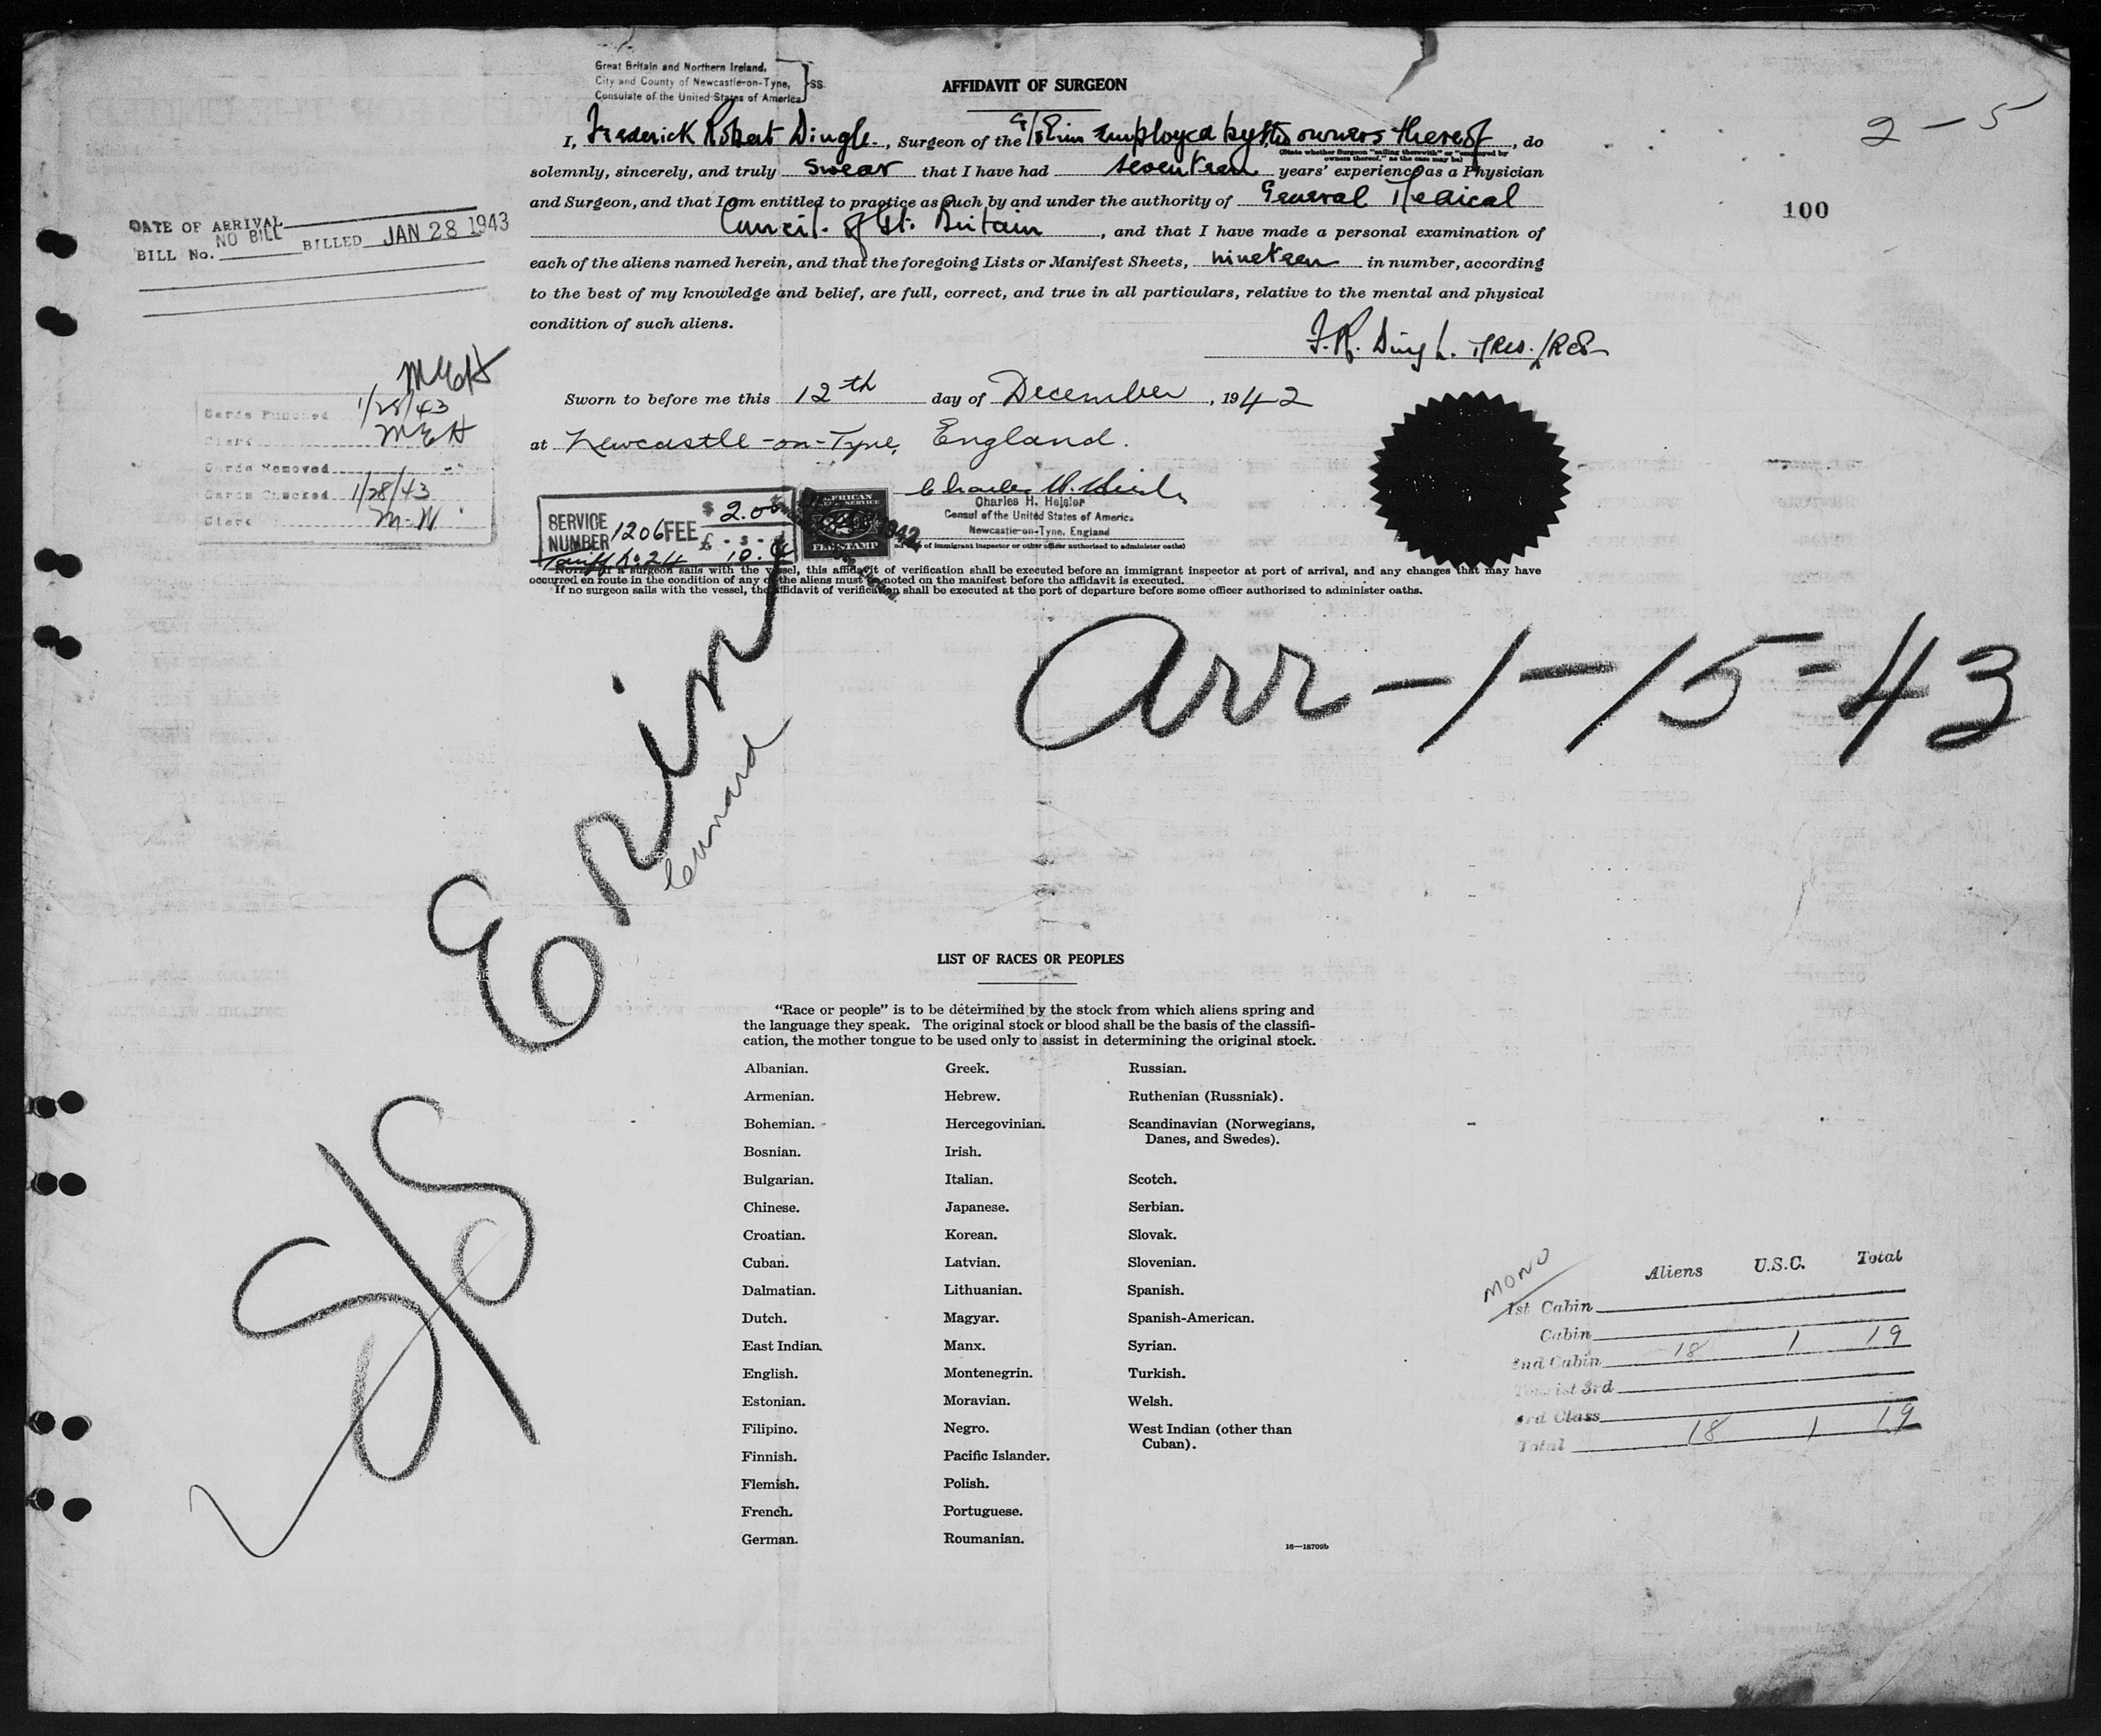 Great Britain and Northern Ireland,
City and County of Newcastle-on-Tyne, } SS
Consulate of the United States of America
AFFIDAVIT OF SURGEON
2 - 5
I, Frederick Robert Dingle, Surgeon of the S/S Erin employed by the owners thereof, do
(State whether Surgeon "sailing therewith" or "employed by
owners thereof," as the case may be)
solemnly, sincerely, and truly swear that I have had seventeen years' experience as a Physician
and Surgeon, and that I am entitled to practice as such by and under the authority of General Medical
Council of Gt. Britain, and that I have made a personal examination of
each of the aliens named herein, and that the foregoing Lists or Manifest Sheets, nineteen in number, according
to the best of my knowledge and belief, are full, correct, and true in all particulars, relative to the mental and physical
condition of such aliens.
100
DATE OF ARRIVAL
BILL No. NO BILL BILLED JAN 28 1943
F.R. Dingle.
MEH
Cards Punched 1/28/43
Clerk MEH
Cards Removed
Cards Checked 1/28/43
Clerk M-W
Sworn to before me this 12th day of December, 1942
at Newcastle-on-Tyne, England.
Charles H. Heisler
Charles H. Heisler
Consul of the United States of America
Newcastle-on-Tyne, England
of immigrant inspector or other officer authorized to administer oaths)
SERVICE NUMBER 1206 FEE $ 2.00
£ - s - d
Tariff No. 24 10.
FEE STAMP
1942
NOTE.—If a surgeon sails with the vessel, this affidavit of verification shall be executed before an immigrant inspector at port of arrival, and any changes that may have
occurred en route in the condition of any of the aliens must be noted on the manifest before the affidavit is executed.
If no surgeon sails with the vessel, the affidavit of verification shall be executed at the port of departure before some officer authorized to administer oaths.
Arr-1-15-43
S/S Erin
Cunard
LIST OF RACES OR PEOPLES
"Race or people" is to be determined by the stock from which aliens spring and
the language they speak. The original stock or blood shall be the basis of the classifi-
cation, the mother tongue to be used only to assist in determining the original stock.
Albanian.
Armenian.
Bohemian.
Bosnian.
Bulgarian.
Chinese.
Croatian.
Cuban.
Dalmatian.
Dutch.
East Indian.
English.
Estonian.
Filipino.
Finnish.
Flemish.
French.
German.
Greek.
Hebrew.
Hercegovinian.
Irish.
Italian.
Japanese.
Korean.
Latvian.
Lithuanian.
Magyar.
Manx.
Montenegrin.
Moravian.
Negro.
Pacific Islander.
Polish.
Portuguese.
Roumanian.
Russian.
Ruthenian (Russniak).
Scandinavian (Norwegians,
Danes, and Swedes).
Scotch.
Serbian.
Slovak.
Slovenian.
Spanish.
Spanish-American.
Syrian.
Turkish.
Welsh.
West Indian (other than
Cuban).
16—18709b
MONO
Aliens U.S.C. Total
1st Cabin
Cabin 18 1 19
2nd Cabin
Tourist 3rd
3rd Class
Total 18 1 19